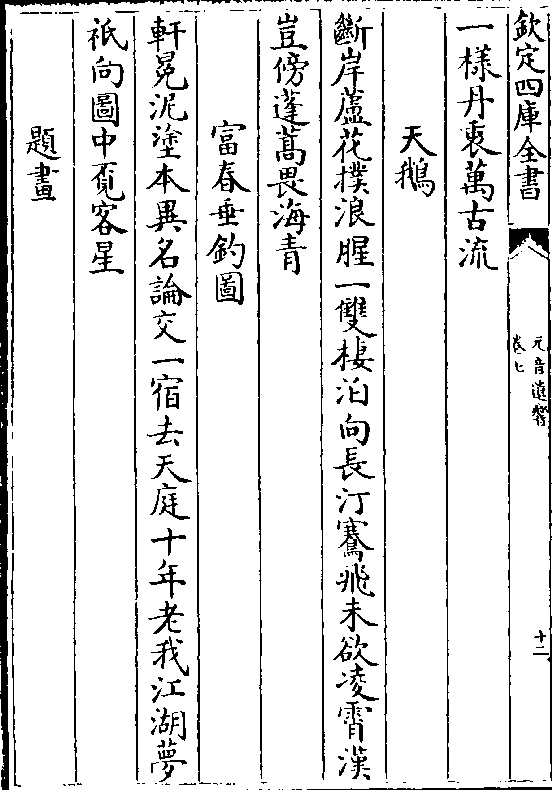 欽定四庫全書
元音遺響
卷七
十二
一樣丹衷萬古流
天鵝
斷岸蘆花撲浪腥一雙棲泊向長汀騫飛未欲凌霄漢
豈傍蓬蒿畏海青
富春垂釣圖
軒冕泥塗本異名論交一宿去天庭十年老我江湖夢
祇向圖中覔客星
題畫